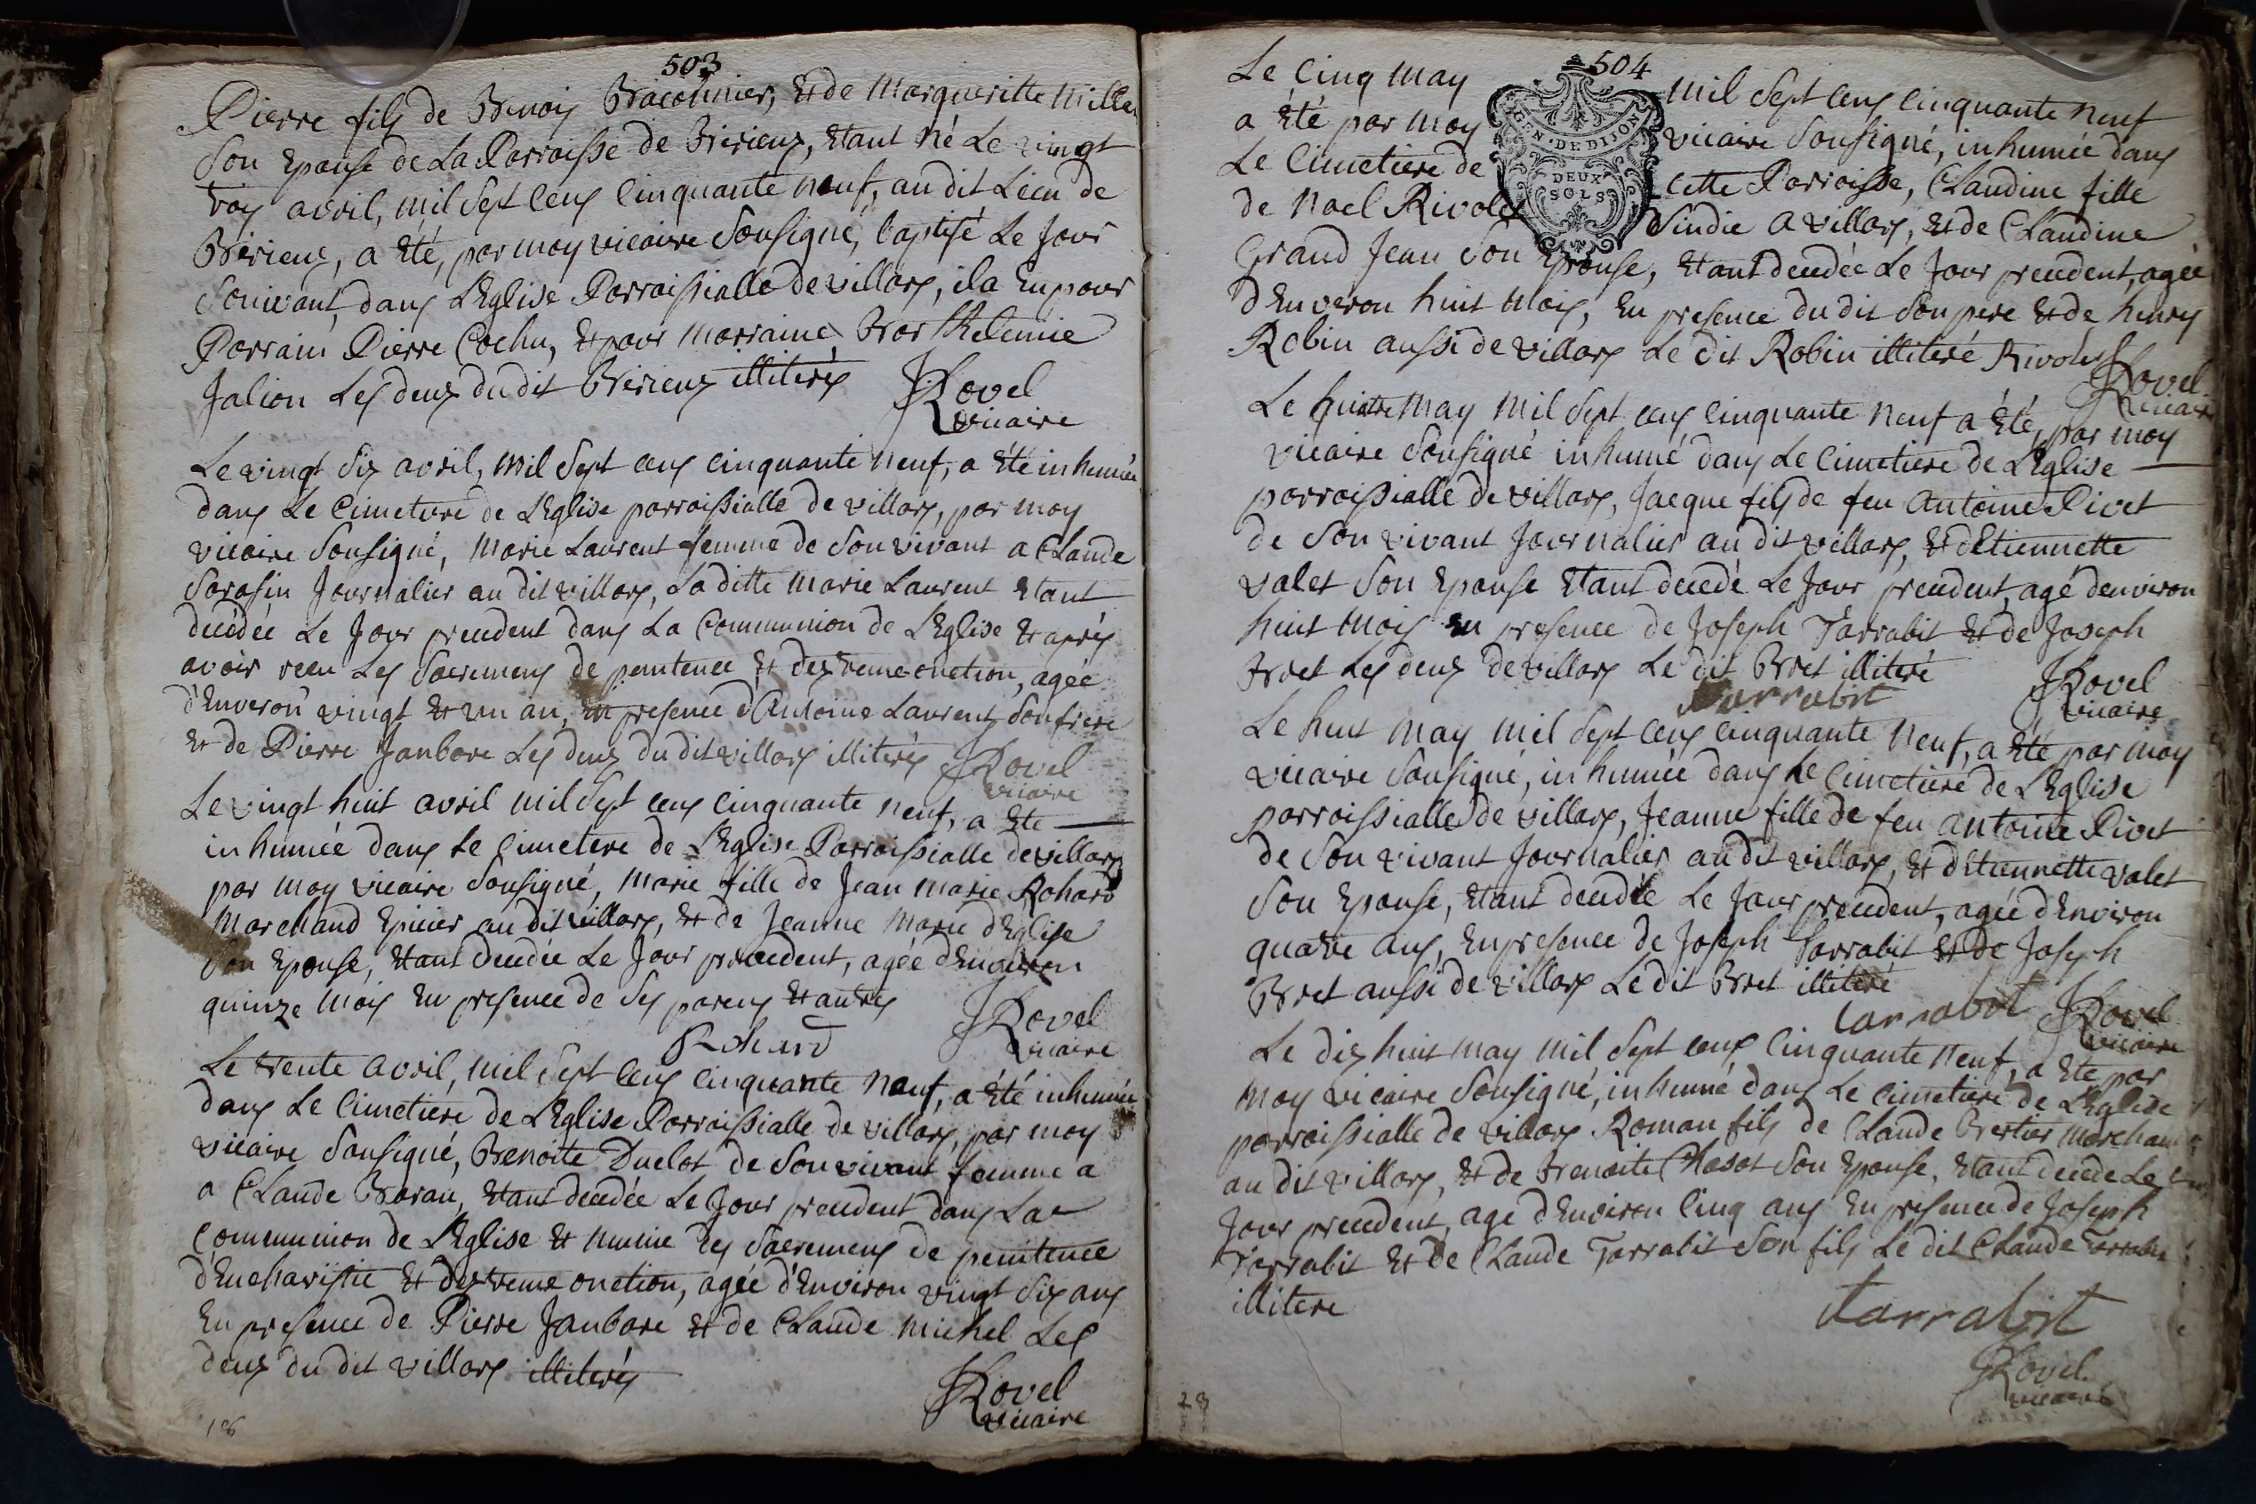 503
Pierre fils de Benois Braconnier, et de Margueritte Millet
son Epouse de la Parroisse de Birieux, etant né le vingt
trois avril, mil sept cens cinquante neuf, au dit Lieu de
Birieux, a été, par moy vicaire sousigné, baptisé le jour
souivant, dans l'Eglise Parroissialle de villars, il a eu pour
Parrain Pierre Cochu, et pour Marraine Barthelemie
Jalion les deux du dit Birieux illiterés
JRovel
vicaire
Le vingt six avril, mil sept cens cinquante neuf, a été inhumée
dans le cimetiere de l'Eglise parroissialle de villars, par moy
vicaire sousigné, Marie Laurent femme de son vivant a Claude
Sarasin journalier au dit villars, la ditte Marie Laurent etant
décédée le jour precedent dans la Communion de l'Eglise et aprés
avoir recu les sacremens de penitence et d'extreme onction, agée
d'Environ vingt et un an, en presence d'Antoine Laurent son frere
et de Pierre Janbare les deux du dit villars illiterés
JRovel
vicaire
Le vingt huit avril mil sept cens cinquante neuf, a été
inhumée dans le cimetiere de l'Eglise Parroissialle de villars
par moy vicaire sousigné, Marie fille de Jean Marie Rohard
Marchand Epicier au dit villars, et de Jeanne Marie d'Eglise
son Epouse, etant decedée le jour precedent, agée d'Environ
quinze mois en presence de ses parens et autres
Rohard
JRovel
vicaire
Le trente avril, mil sept cens cinquante neuf, a été inhumée
dans le cimetiere de l'Eglise Parroissialle de villars, par moy
vicaire sousigné, Benoite Duclot de son vivant femme a
a Claude Baran, etant decedée le jour precedent dans la
Communion de l'Eglise et munie des sacremens de penitence
d'Eucharistie et d'extreme onction, agée d'Environ vingt six ans
En presence de Pierre Janbare et de Claude Michel les
deux du dit villars illiterés
JRovel
vicaire
504
GEN · DE DIJON
DEUX
SOLS
Le cinq may mil sept cens cinquante neuf
a été par moy vicaire sousigné, inhumée dans
Le cimetiere de cette Parroisse, Claudine fille
de Noel Rivolet Sindic a villars, et de Claudine
Grand Jean son Epouse, etant decedée le jour precedent, agée
d'Environ huit mois, en presence du dit son pere et de henry
Robin aussi de villars le dit Robin illiteré Rivolet
JRovel
vicaire
Le huitre may mil sept cens cinquante neuf a été, par moy
vicaire sousigné inhumé dans le cimetiere de l'Eglise
parroissialle de villars, Jacque fils de feu Antoine Pivet
de son vivant journalier au dit villars, et d'Etiennette
valet son Epouse etant decedé le jour precedent, agé d'environ
huit mois en presence de Joseph Tarrabit et de Joseph
Bret les deux de villars le dit Bret illiteré
Tarrabit
JRovel
vicaire
Le huit may mil sept cens cinquante neuf, a été par moy
vicaire sousigné, inhumée dans le cimetiere de l'Eglise
parroissialle de villars, Jeanne fille de feu Antoine Pivet
de son vivant journalier au dit villars, et d'Etiennette valet
son Epouse, etant decedée le jour precedent, agée d'Environ
quatre ans, en presence de Joseph Tarrabit et de Joseph
Bret aussi de villars le dit Bret illiteré
tarrabit
JRovel
vicaire
Le dix huit may mil sept cens cinquante neuf, a été par
moy vicaire sousigné, inhumé dans le cimetiere de l'Eglise
parroissialle de villars Roman fils de Claude Bertier marchand
au dit villars, et de Benoite Chasot son Epouse, etant decedé le
jour precedent, agé d'Environ cinq ans en presence de Joseph
Tarrabit et de Claude Tarrabit son fils le dit Claude Tarrabit
illiteré
tarrabit
JRovel
vicaire
28